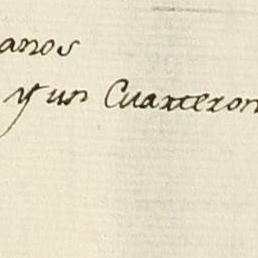 anos
y un Cuarteron